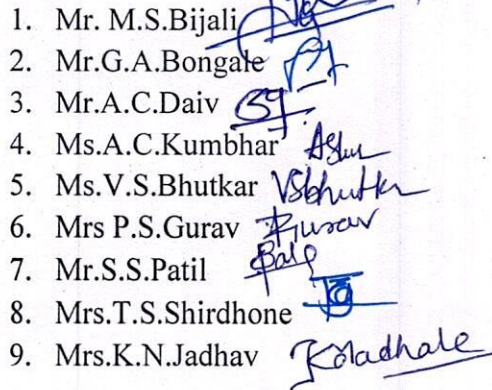 1. Mr. M.S.Bijali
2. Mr.G.A.Bongale
3. Mr.A.C.Daiv
4. Ms.A.C.Kumbhar
5. Ms.V.S.Bhutkar VSBhutkar
6. Mrs P.S.Gurav PGurav
7. Mr.S.S.Patil
8. Mrs.T.S.Shirdhone
9. Mrs.K.N.Jadhav